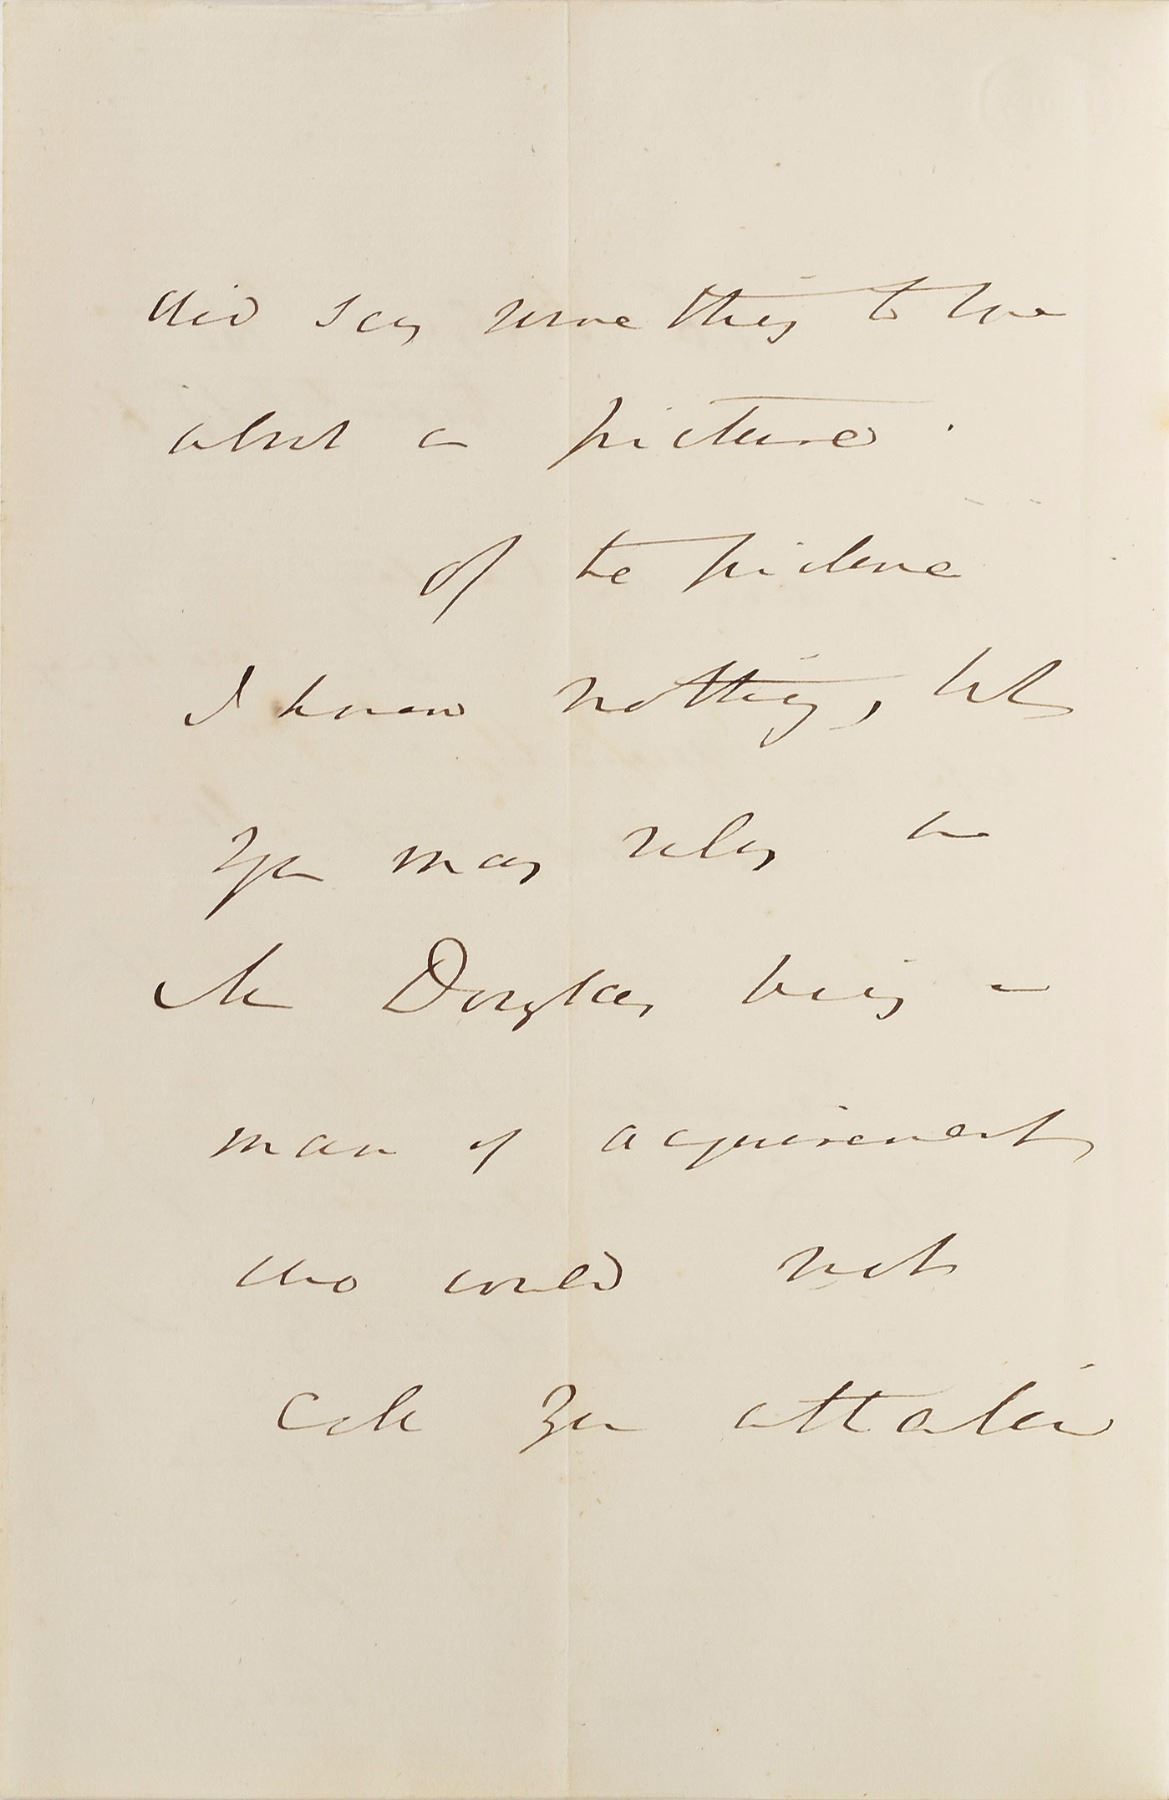 did say some thing to me
about a picture.
of the picture
I know nothing, but
you may rely on
Mr Douglas being a
man of acquirements
who would not
ask you